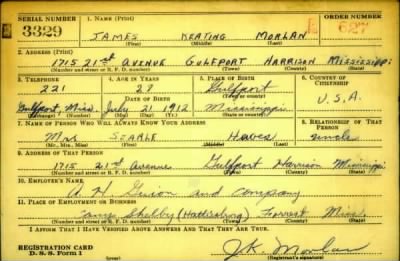 SERIAL NUMBER 1. NAME (Print) ORDER NUMBER
3329 JAMES KEATING MORLAN E 627
(First) (Middle) (Last)
2. ADDRESS (Print)
1715 21st AVENUE GULFPORT HARRISON MISSISSIPPI
(Number and street or R. F. D. number) (Town) (County) (State)
3. TELEPHONE 4. AGE IN YEARS 5. PLACE OF BIRTH 6. COUNTRY OF CITIZENSHIP
221 27 Gulfport
Gulfport, Miss. DATE OF BIRTH (Town or county)
July 21 1912 Mississippi U.S.A.
(Exchange) (Number) (Mo.) (Day) (Yr.) (State or country)
7. NAME OF PERSON WHO WILL ALWAYS KNOW YOUR ADDRESS 8. RELATIONSHIP OF THAT PERSON
Mr Searle Hawes uncle
(Mr., Mrs., Miss) (First) (Middle) (Last)
9. ADDRESS OF THAT PERSON
1715 21st Avenue Gulfport Harrison Mississippi
(Number and street or R. F. D. number) (Town) (County) (State)
10. EMPLOYER'S NAME
A. H. Guion and Company
11. PLACE OF EMPLOYMENT OR BUSINESS
Camp Shelby (Hattiesburg) Forrest Miss.
(Number and street or R. F. D. number) (Town) (County) (State)
I AFFIRM THAT I HAVE VERIFIED ABOVE ANSWERS AND THAT THEY ARE TRUE.
REGISTRATION CARD
D. S. S. Form 1 J.K. Morlan
(Registrant's signature)